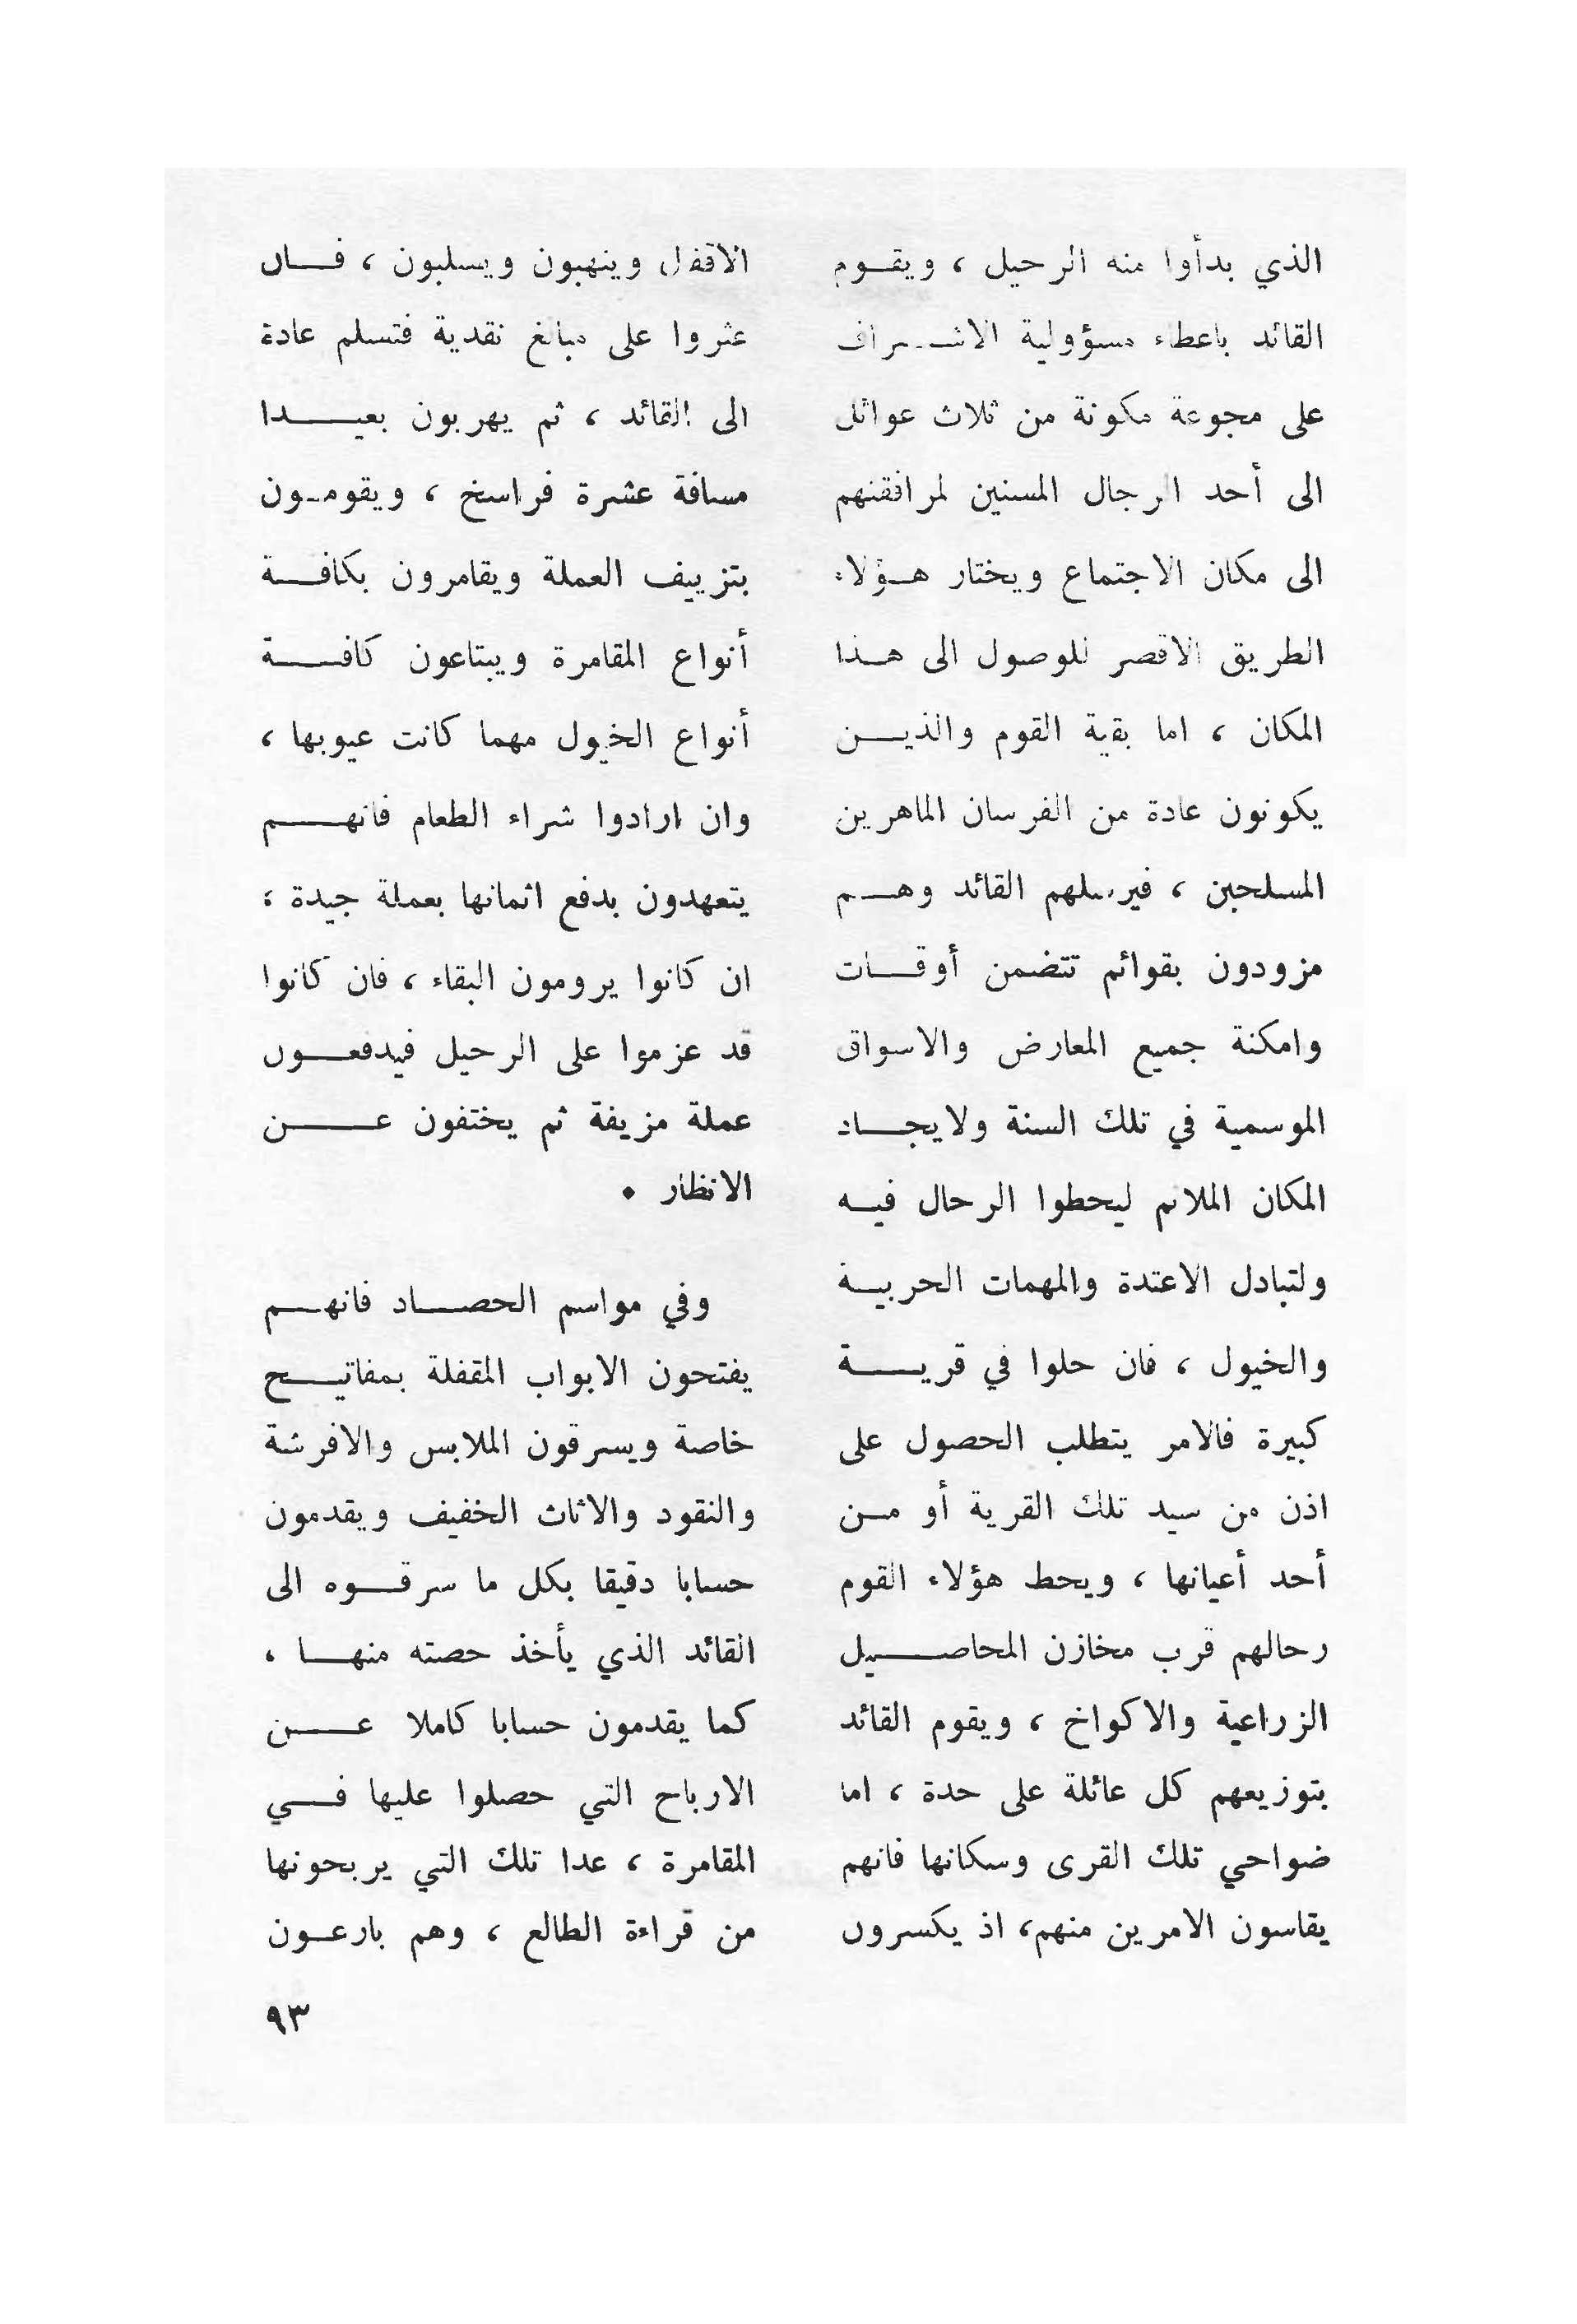 الذي بدأوا منه الرحيل ، ويقوم
القائد باعطاء مسؤولية الاشراف
على مجوعة مكونة من ثلاث عوائل
الى أحد الرجال المسنين لمرافقنهم
الى مكان الاجتماع ويختار هؤلاء
الطريق الاقصر للوصول الى هذا
المكان ، اما بقية القوم والذين
يكونون عادة من الفرسان الماهرين
المسلحين ، فيرسلهم القائد وهم
مزودون بقوائم تتضمن أوقات
وامكنة جميع المعارض والاسواق
الموسمية في تلك السنة ولايجاد
المكان الملائم ليحطوا الرحال فيه
ولتبادل الاعتدة والمهمات الحربية
والخيول ، فان حلوا في قرية
كبيرة فالامر يتطلب الحصول على
اذن من سيد تلك القرية أو من
أحد أعيانها ، ويحط هؤلاء القوم
رحالهم قرب مخازن المحاصيل
الزراعية والاكواخ ، ويقوم القائد
بتوزيعهم كل عائلة على حدة ، اما
ضواحي تلك القرى وسكانها فانهم
يقاسون الامرين منهم، اذ يكسرون
الاقفال وينهبون ويسلبون ، فان
عثروا على مبالغ نقدية فتسلم عادة
الى القائد ، ثم يهربون بعيدا
مسافة عشرة فراسخ ، ويقومون
بتزييف العملة ويقامرون بكافة
أنواع المقامرة ويبتاعون كافة
أنواع الخيول مهما كانت عيوبها ،
وان ارادوا شراء الطعام فانهم
يتعهدون بدفع اثمانها بعملة جيدة ،
ان كانوا يرومون البقاء ، فان كانوا
قد عزموا على الرحيل فيدفعون
عملة مزيفة ثم يختفون عن
الانظار .
وفي مواسم الحصاد فانهم
يفتحون الابواب المقفلة بمفاتيح
خاصة ويسرقون الملابس والافرشة
والنقود والاثاث الخفيف ويقدمون
حسابا دقيقا بكل ما سرقوه الى
القائد الذي يأخذ حصته منها ،
كما يقدمون حسابا كاملا عن
الارباح التي حصلوا عليها في
المقامرة ، عدا تلك التي يربحونها
من قراءة الطالع ، وهم بارعون
٩٣